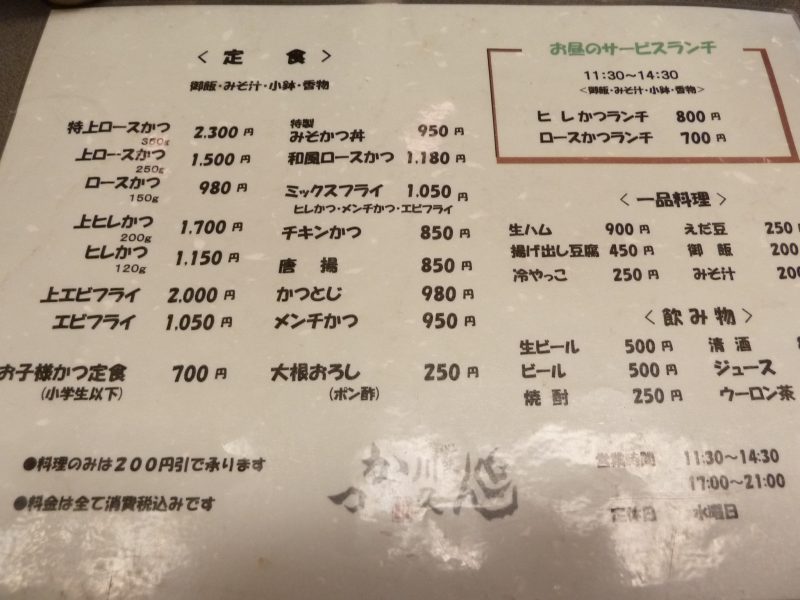 ＜ 定　食 ＞
御飯・みそ汁・小鉢・香物
特上ロースかつ 2.300 円
350g
上ロースかつ 1.500 円
250g
ロースかつ 980 円
150g
上ヒレかつ 1.700 円
200g
ヒレかつ 1.150 円
120g
上エビフライ 2.000 円
エビフライ 1.050 円
お子様かつ定食 700 円
(小学生以下)
特製
みそかつ丼 950 円
和風ロースかつ 1.180 円
ミックスフライ 1.050 円
ヒレかつ・メンチかつ・エビフライ
チキンかつ 850 円
唐　揚 850 円
かつとじ 980 円
メンチかつ 950 円
大根おろし 250 円
(ポン酢)
お昼のサービスランチ
11:30～14:30
＜御飯・みそ汁・小鉢・香物＞
ヒレかつランチ 800 円
ロースかつランチ 700 円
＜ 一品料理 ＞
生ハム 900 円 えだ豆 250
揚げ出し豆腐 450 円 御　飯 200
冷やっこ 250 円 みそ汁 200
＜ 飲み物 ＞
生ビール 500 円 清　酒
ビール 500 円 ジュース
焼　酎 250 円 ウーロン茶
●料理のみは２００円引で承ります
●料金は全て消費税込みです
営業時間 11:30～14:30
17:00～21:00
定休日 水曜日